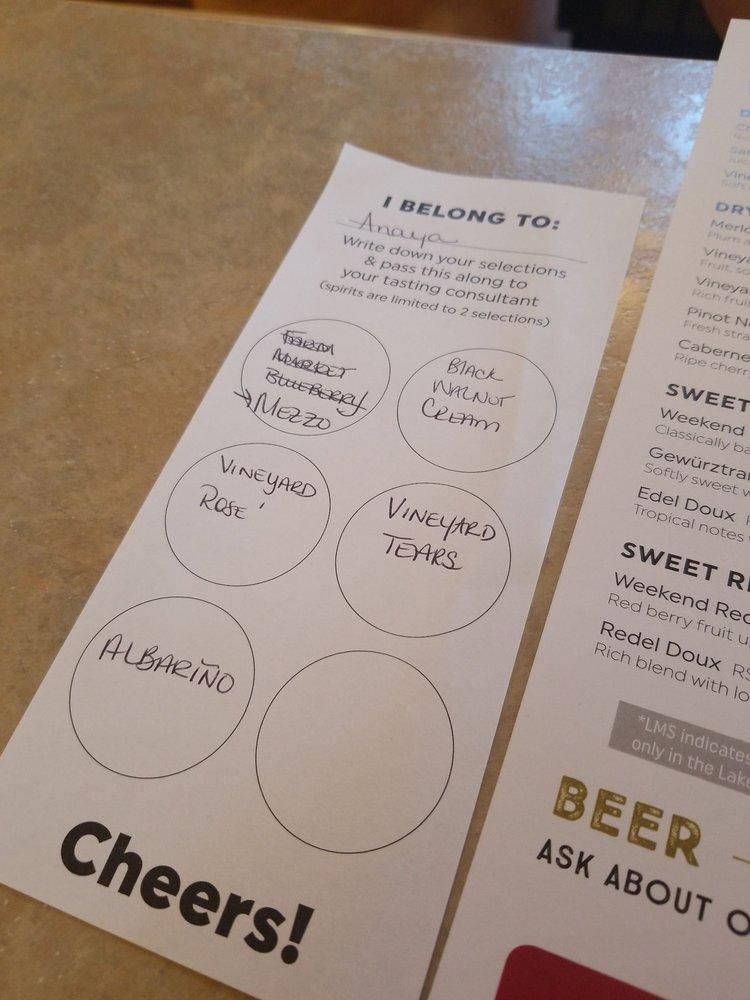 I BELONG TO:
Anaya
Write down your selections
& pass this along to
your tasting consultant
(spirits are limited to 2 selections)
FARM
MARKET
BLUEBERRY
→MEZZO
BLACK
WALNUT
CREAM
VINEYARD
ROSE'
VINEYARD
TEARS
ALBARIÑO
Cheers!
DRY
Merlo
Plum a
Viney
Fruit, so
Vineya
Rich frui
Pinot N
Fresh stra
Caberne
Ripe cherr
SWEET
Weekend
Classically ba
Gewürztra
Softly sweet w
Edel Doux
Tropical notes
SWEET R
Weekend Red
Red berry fruit u
Redel Doux RS
Rich blend with lo
*LMS indicates
only in the Lake
BEER
ASK ABOUT O